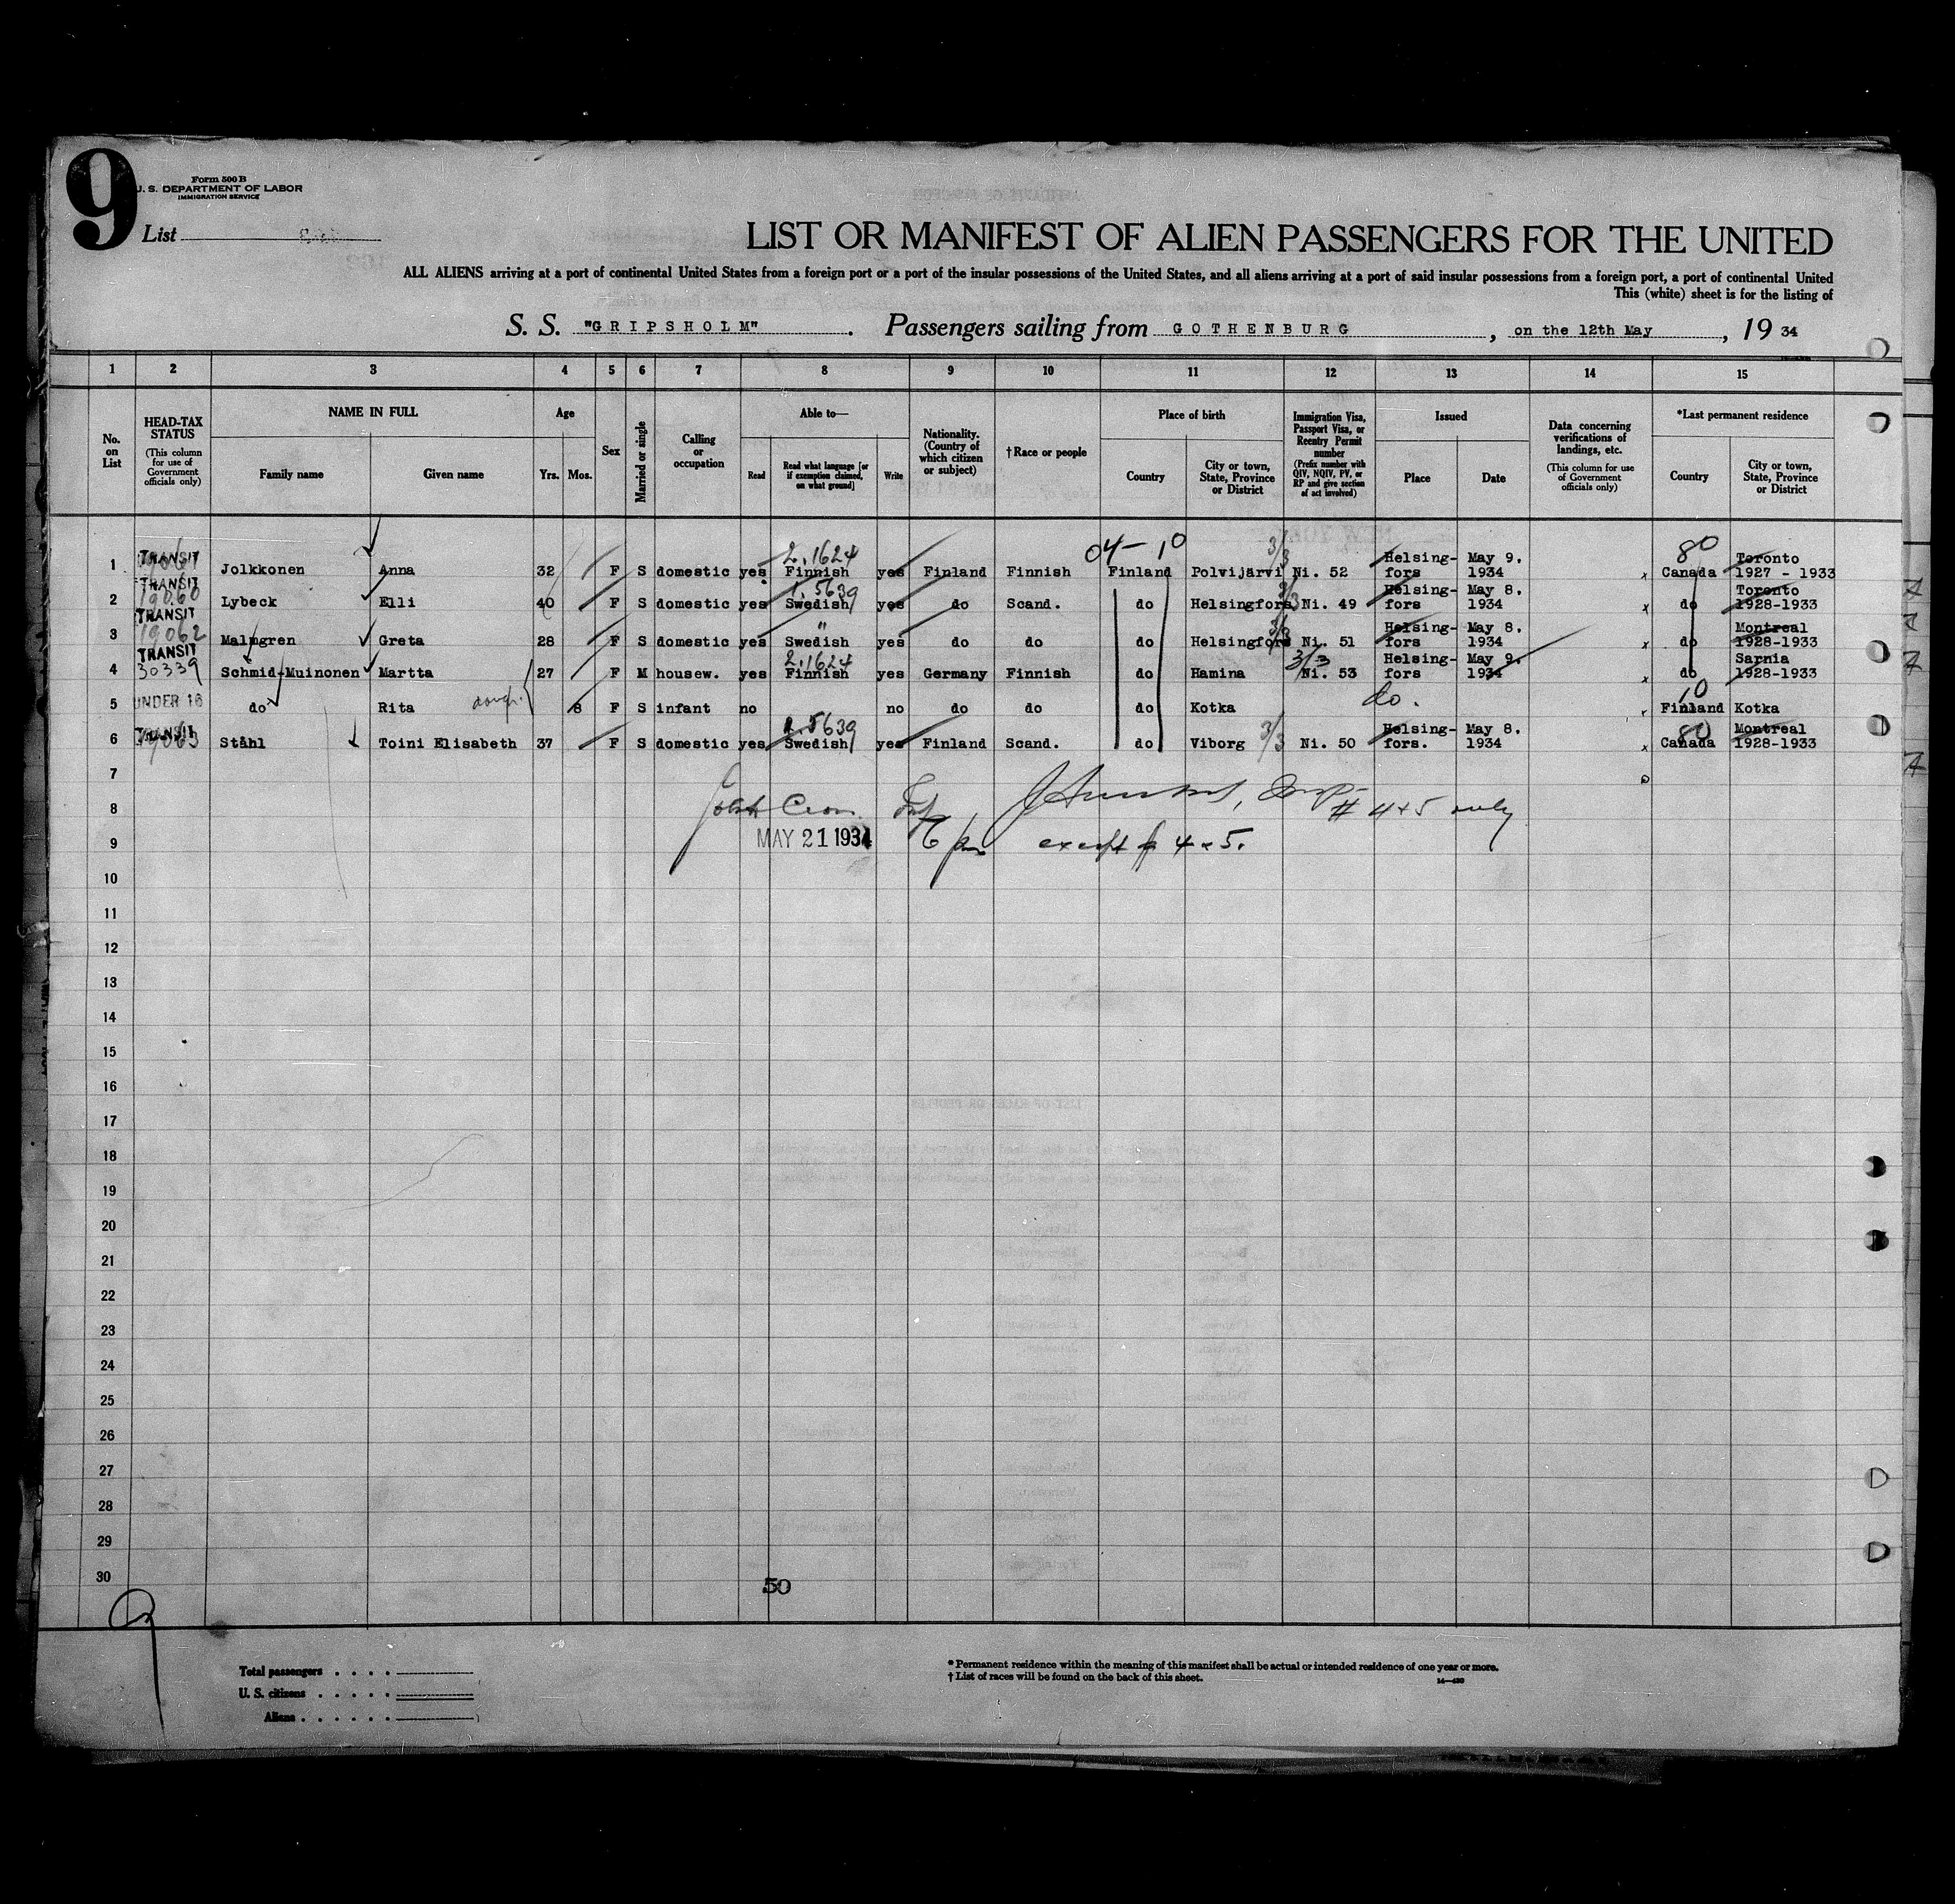 9
Form 500 B
U. S. DEPARTMENT OF LABOR
IMMIGRATION SERVICE
List
LIST OR MANIFEST OF ALIEN PASSENGERS FOR THE UNITED
ALL ALIENS arriving at a port of continental United States from a foreign port or a port of the insular possessions of the United States, and all aliens arriving at a port of said insular possessions from a foreign port, a port of continental United
This (white) sheet is for the listing of
S. S. "GRIPSHOLM". Passengers sailing from GOTHENBURG, on the 12th May, 19 34
1 2 3 4 5 6 7 8 9 10 11 12 13 14 15
No. on List
HEAD-TAX STATUS (This column for use of Government officials only)
NAME IN FULL
Family name Given name
Age
Yrs. Mos.
Sex
Married or single
Calling or occupation
Able to—
Read Read what language [or if exemption claimed, on what ground] Write
Nationality. (Country of which citizen or subject)
†Race or people
Place of birth
Country City or town, State, Province or District
Immigration Visa, Passport Visa, or Reentry Permit number (Prefix number with QIV, NQIV, PV, or RP and give section of act involved)
Issued
Place Date
Data concerning verifications of landings, etc. (This column for use of Government officials only)
*Last permanent residence
Country City or town, State, Province or District
04-10 80
1 TRANSIT Jolkkonen Anna 32 F S domestic yes 2.1624 Finnish yes Finland Finnish Finland Polvijärvi 3/3 Ni. 52 Helsing-fors May 9. 1934 x Canada Toronto 1927 - 1933
2 TRANSIT 19060 Lybeck Elli 40 F S domestic yes 1.5639 Swedish yes do Scand. do Helsingfors 3/3 Ni. 49 Helsing-fors May 8. 1934 x do Toronto 1928-1933
3 TRANSIT 19062 Malmgren Greta 28 F S domestic yes " Swedish yes do do do Helsingfors 3/3 Ni. 51 Helsing-fors May 8. 1934 x do Montreal 1928-1933
4 TRANSIT 30339 Schmid-Muinonen Martta 27 F M housew. yes 2.1624 Finnish yes Germany Finnish do Hamina 3/3 Ni. 53 Helsing-fors May 9. 1934 x do Sarnia 1928-1933
5 UNDER 16 do Rita 8 F S infant no no do do do Kotka do. 10 Finland Kotka
6 TRANSIT 19063 Ståhl Toini Elisabeth 37 F S domestic yes 1.5639 Swedish yes Finland Scand. do Viborg 3/3 Ni. 50 Helsing-fors. May 8. 1934 x 80 Canada Montreal 1928-1933
7
8 # 4+5 only
9 MAY 21 1934 except # 4 & 5.
10
11
12
13
14
15
16
17
18
19
20
21
22
23
24
25
26
27
28
29
30
50
Total passengers
U. S. citizens
Aliens
* Permanent residence within the meaning of this manifest shall be actual or intended residence of one year or more.
† List of races will be found on the back of this sheet.